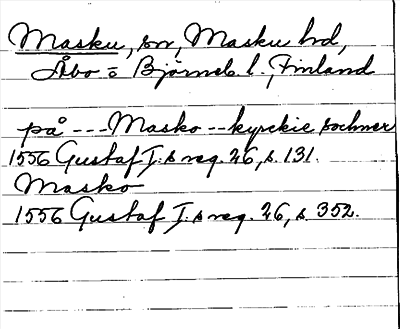 Masku, sn, Masku hd,
Åbo o Björneb. l., Finland
på --- Masko -- kyrckie sochner
1556 Gustaf I:s reg. 26, s. 131.
Masko
1556 Gustaf I:s reg. 26, s. 352.